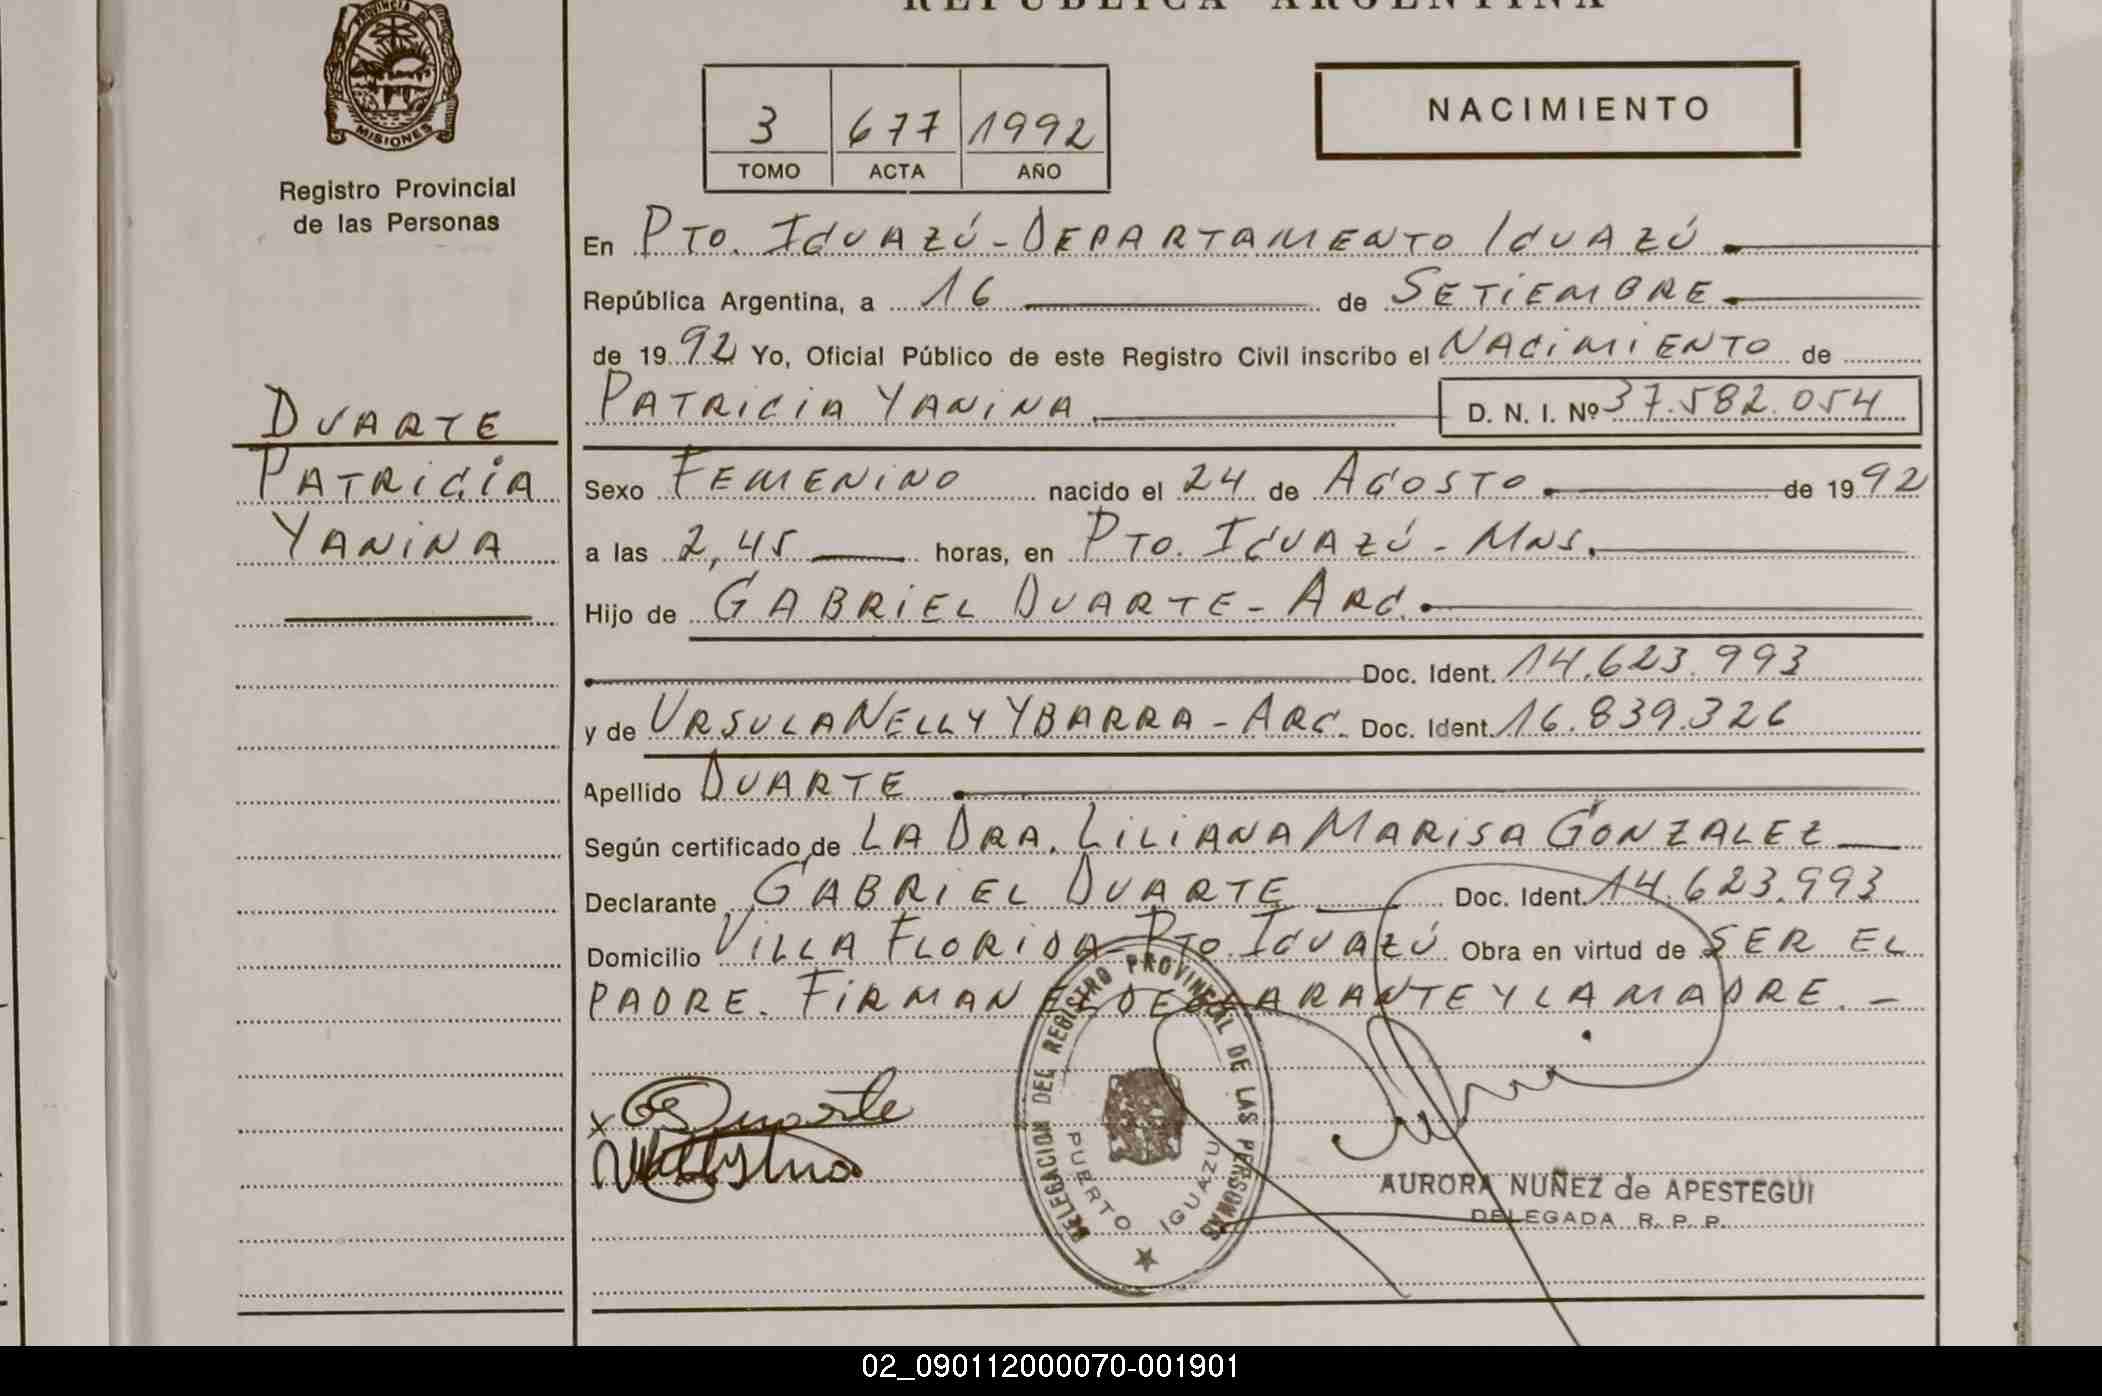 REPUBLICA ARGENTINA
PROVINCIA DE
MISIONES
Registro Provincial
de las Personas
3 677 1992
TOMO ACTA AÑO
NACIMIENTO
En PTO. IGUAZÚ - DEPARTAMENTO IGUAZÚ
República Argentina, a 16 de SETIEMBRE
de 1992 Yo, Oficial Público de este Registro Civil inscribo el NACIMIENTO de
PATRICIA YANINA D. N. I. Nº 37.582.054
DUARTE
PATRICIA
YANINA
Sexo FEMENINO nacido el 24 de AGOSTO de 1992
a las 2,45 horas, en PTO. IGUAZÚ - MNS.
Hijo de GABRIEL DUARTE - ARG.
Doc. Ident. 14.623.993
y de URSULA NELLY YBARRA - ARG. Doc. Ident. 16.839.326
Apellido DUARTE
Según certificado de LA DRA. LILIANA MARISA GONZALEZ
Declarante GABRIEL DUARTE Doc. Ident. 14.623.993
Domicilio VILLA FLORIDA - PTO. IGUAZÚ Obra en virtud de SER EL
PADRE. FIRMAN EL DECLARANTE Y LA MADRE. -
x G Duarte
DELEGACION DEL REGISTRO PROVINCIAL DE LAS PERSONAS
PUERTO IGUAZU
AURORA NUÑEZ de APESTEGUI
DELEGADA R. P. P.
02_090112000070-001901